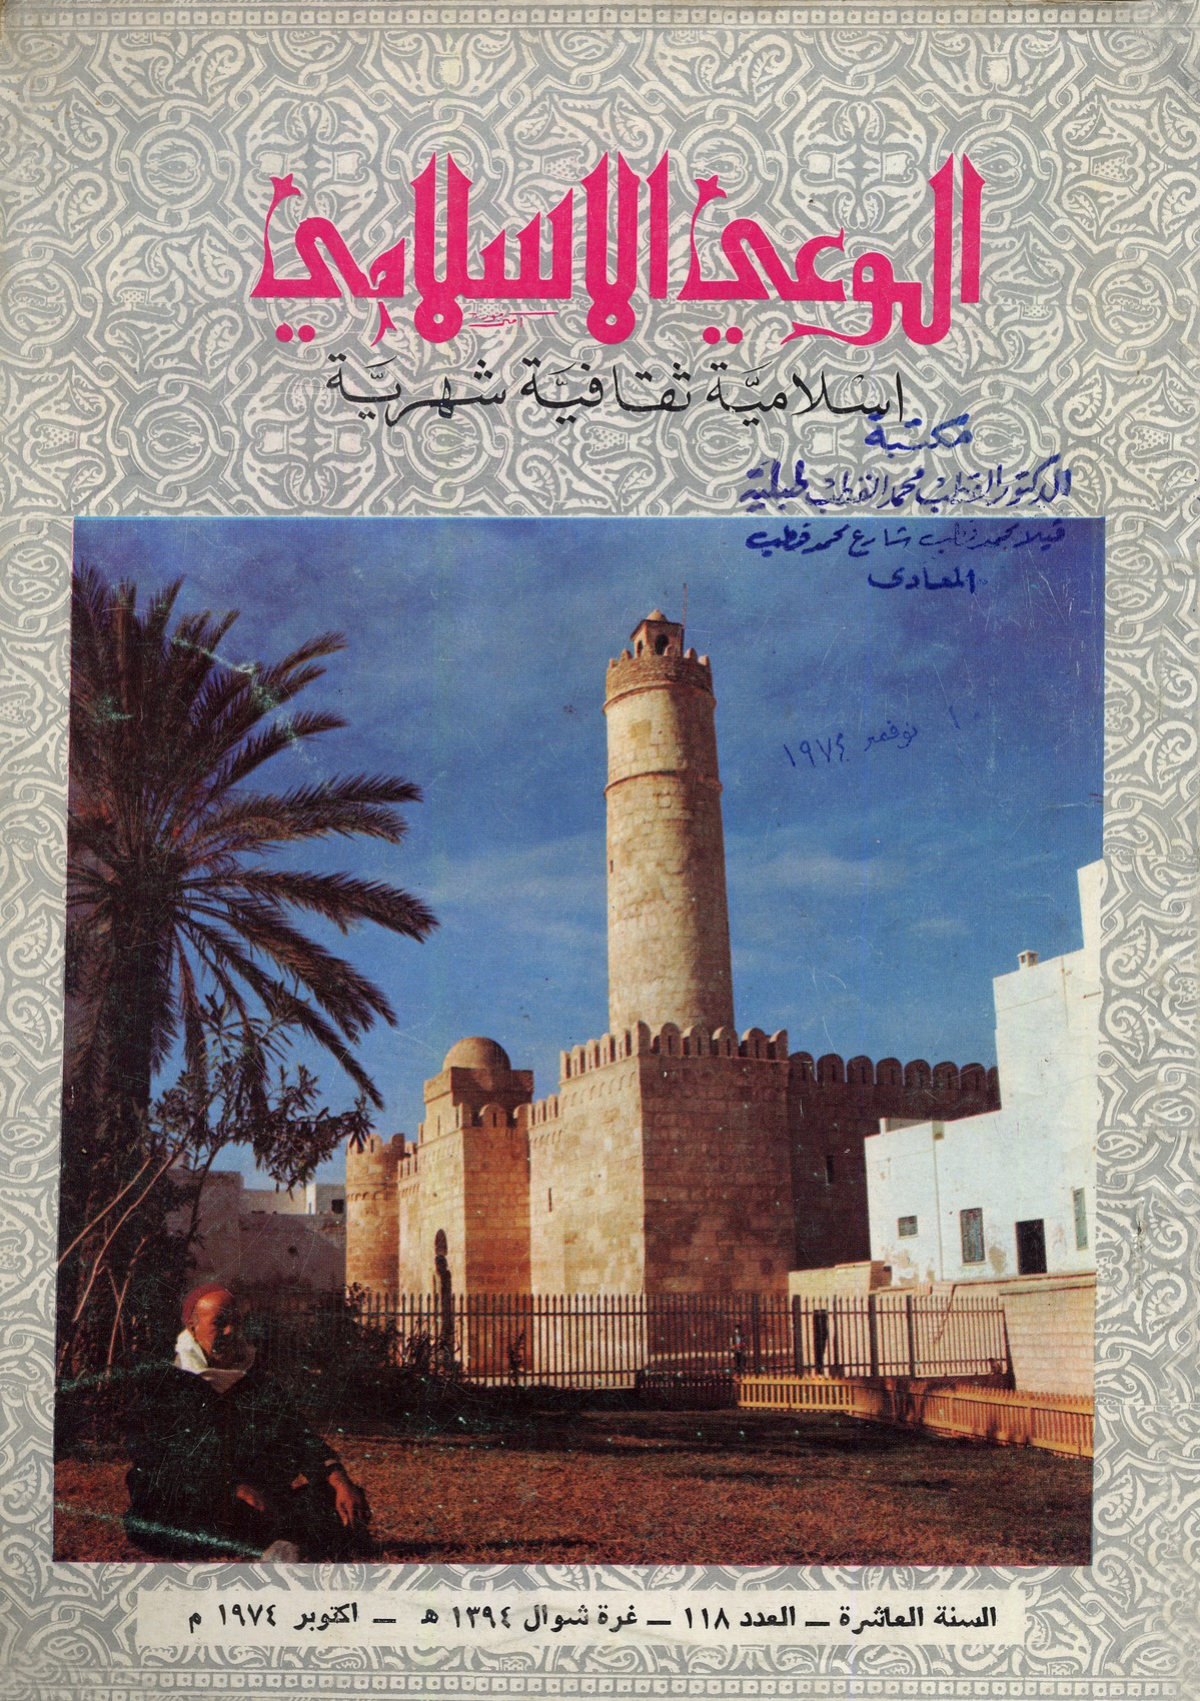 الوعي الإسلامي
إسلاميَّة ثقافيَّة شهريَّة
مكتبة
الدكتور القطب محمد القطب طبلية
فيلا محمد قطب شارع محمد قطب
المعادى
١٠ نوفمبر ١٩٧٤
السنة العاشرة ــ العدد ١١٨ ــ غرة شوال ١٣٩٤ هـ ــ اكتوبر ١٩٧٤ م